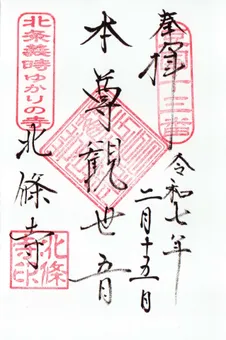 奉拝
令和七年
二月十五日
本尊觀世音
北条義時ゆかりの寺
北條寺
北條
寺印